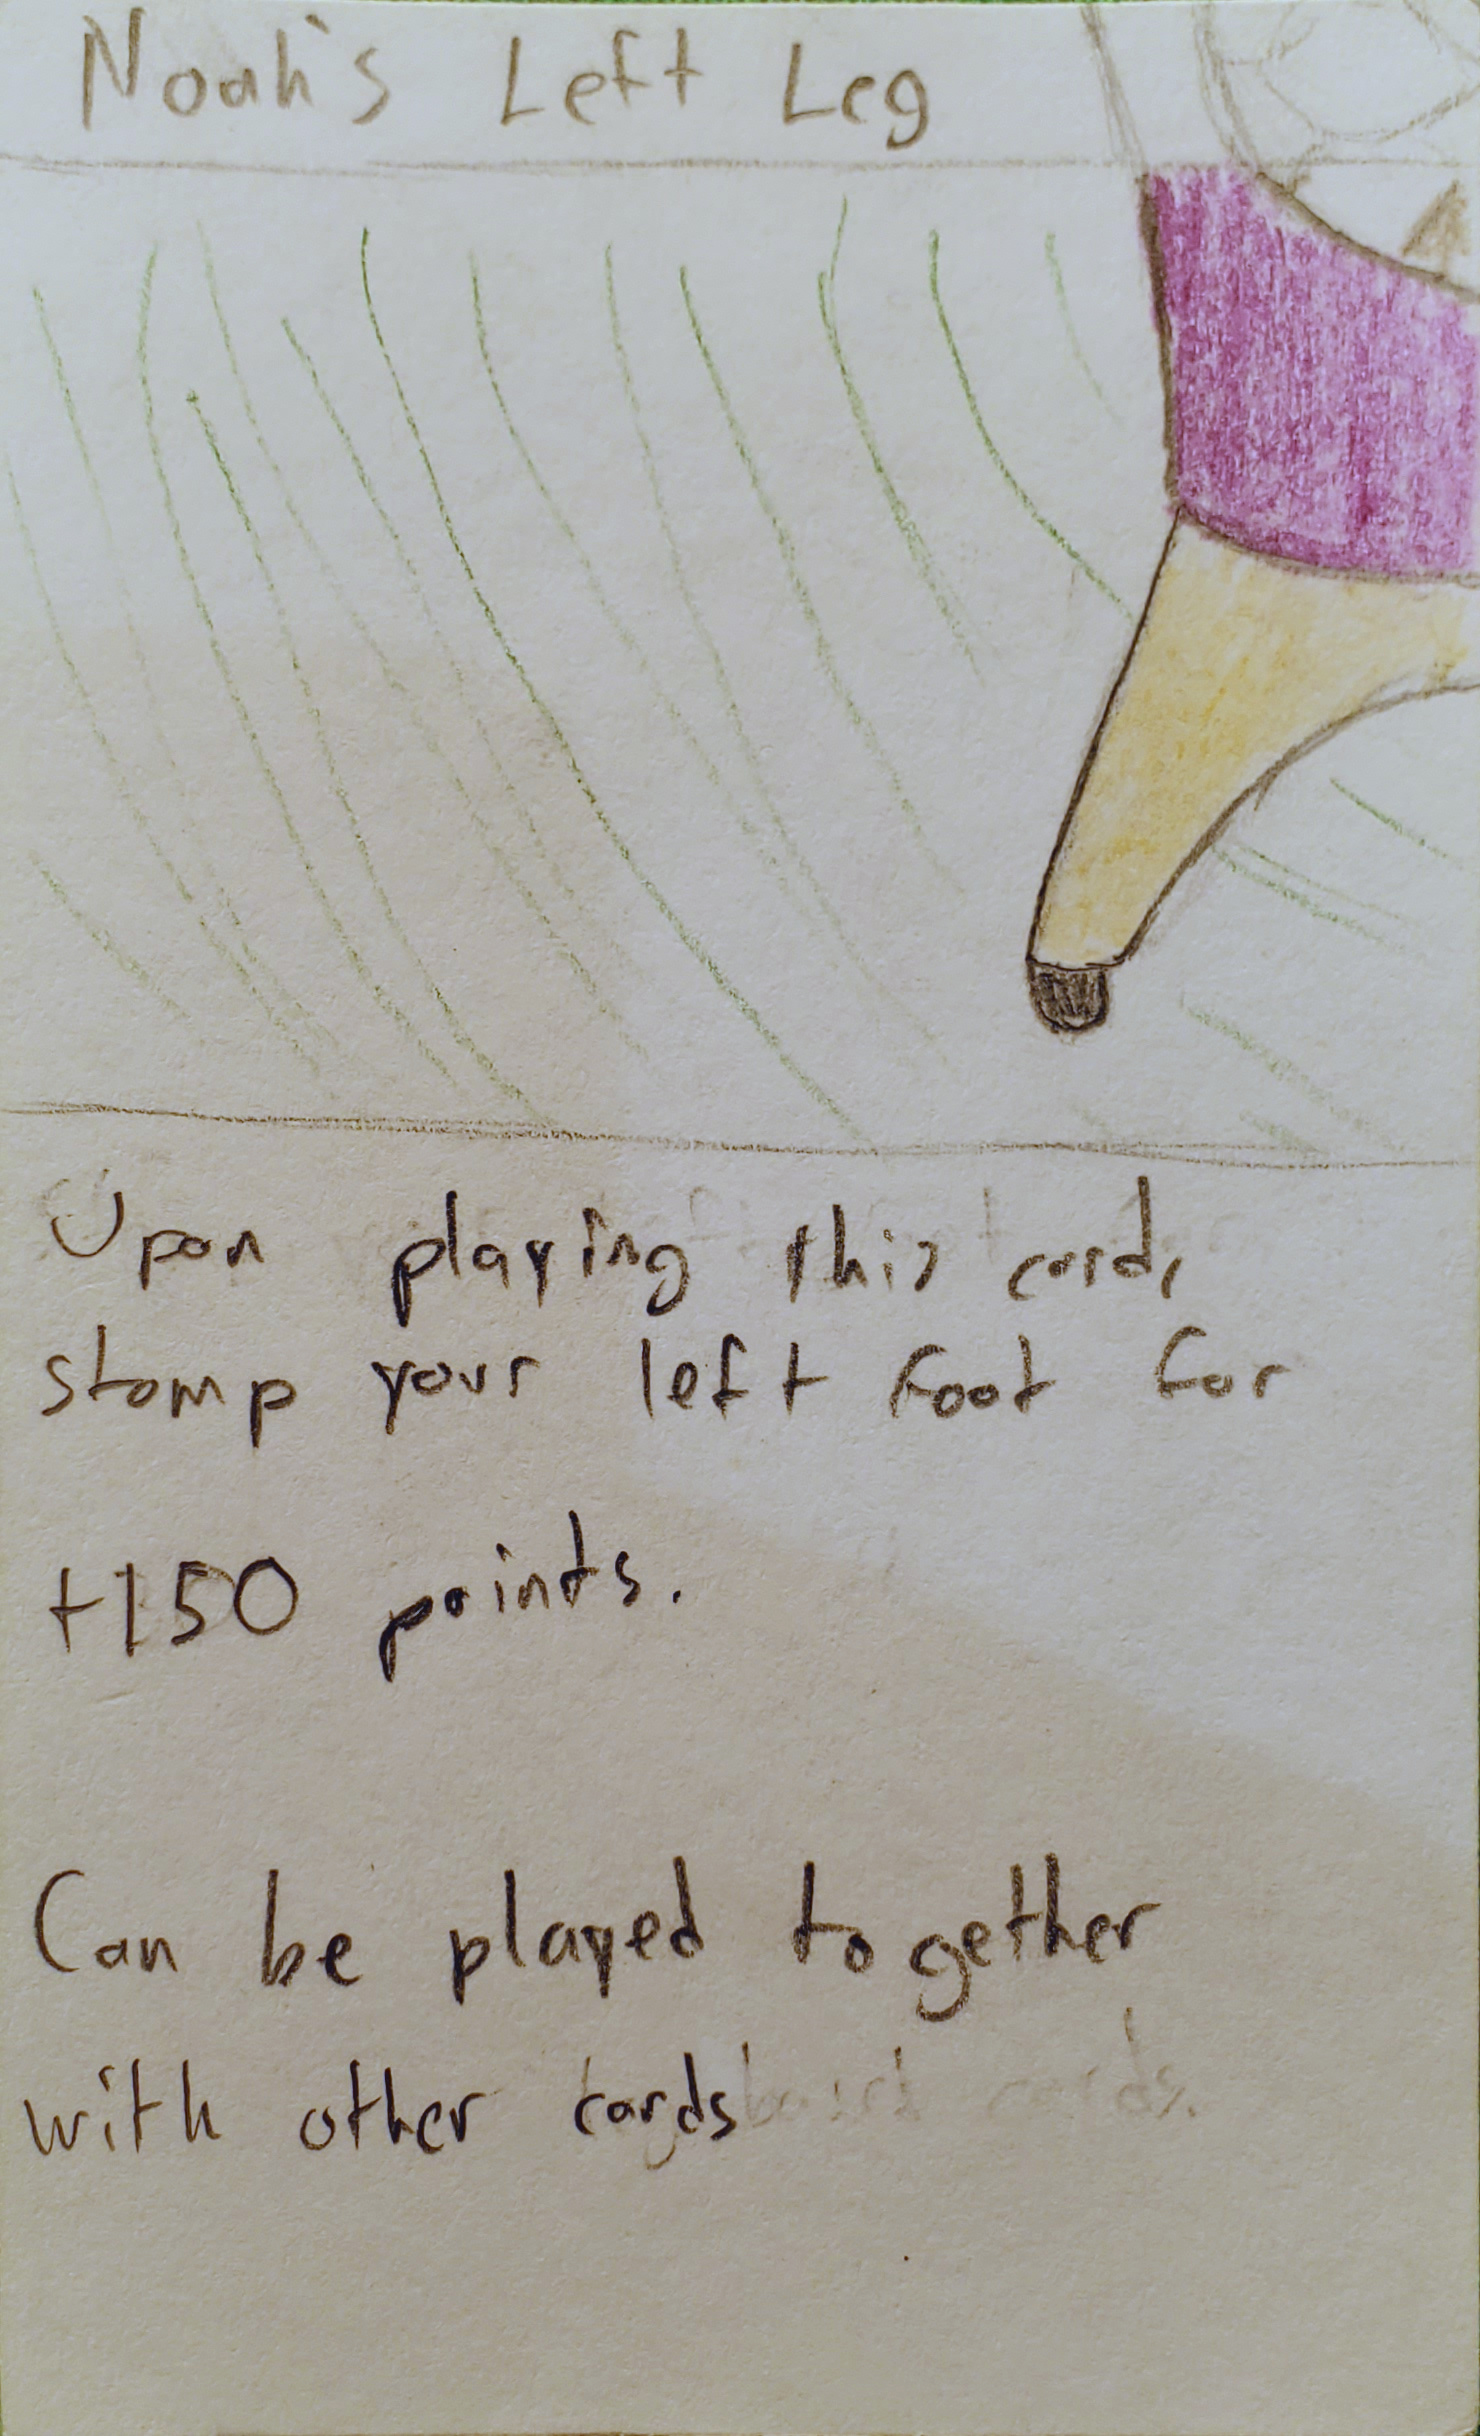 Noah's Left Leg
Upon playing this card,
stomp your left foot for
+150 points.
Can be played together
with other cards